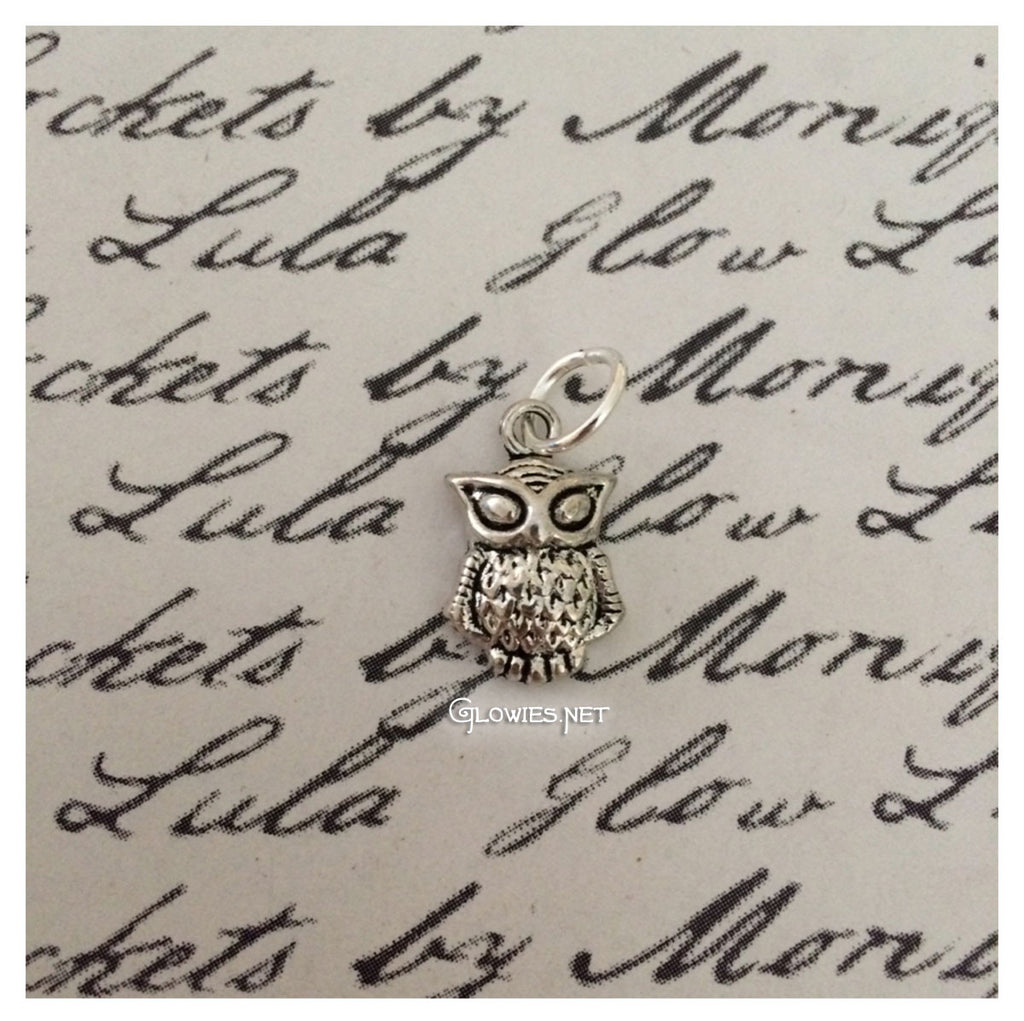 ckets by Moniq
Lula Glow Lu
ckets by Moniq
Lula Glow Lu
ckets by Moniq
Glowies.net
Lula Glow L
ckets by Moni